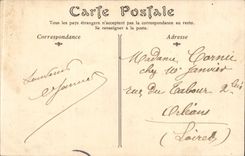 Carte Postale
Tous les pays étrangers n'acceptent pas la correspondance au recto.
Se renseigner à la poste.
Correspondance
Adresse
Madame Cornée
chez Mr Janvier
rue du Tabour 2 bis
Orléans
(Loiret)